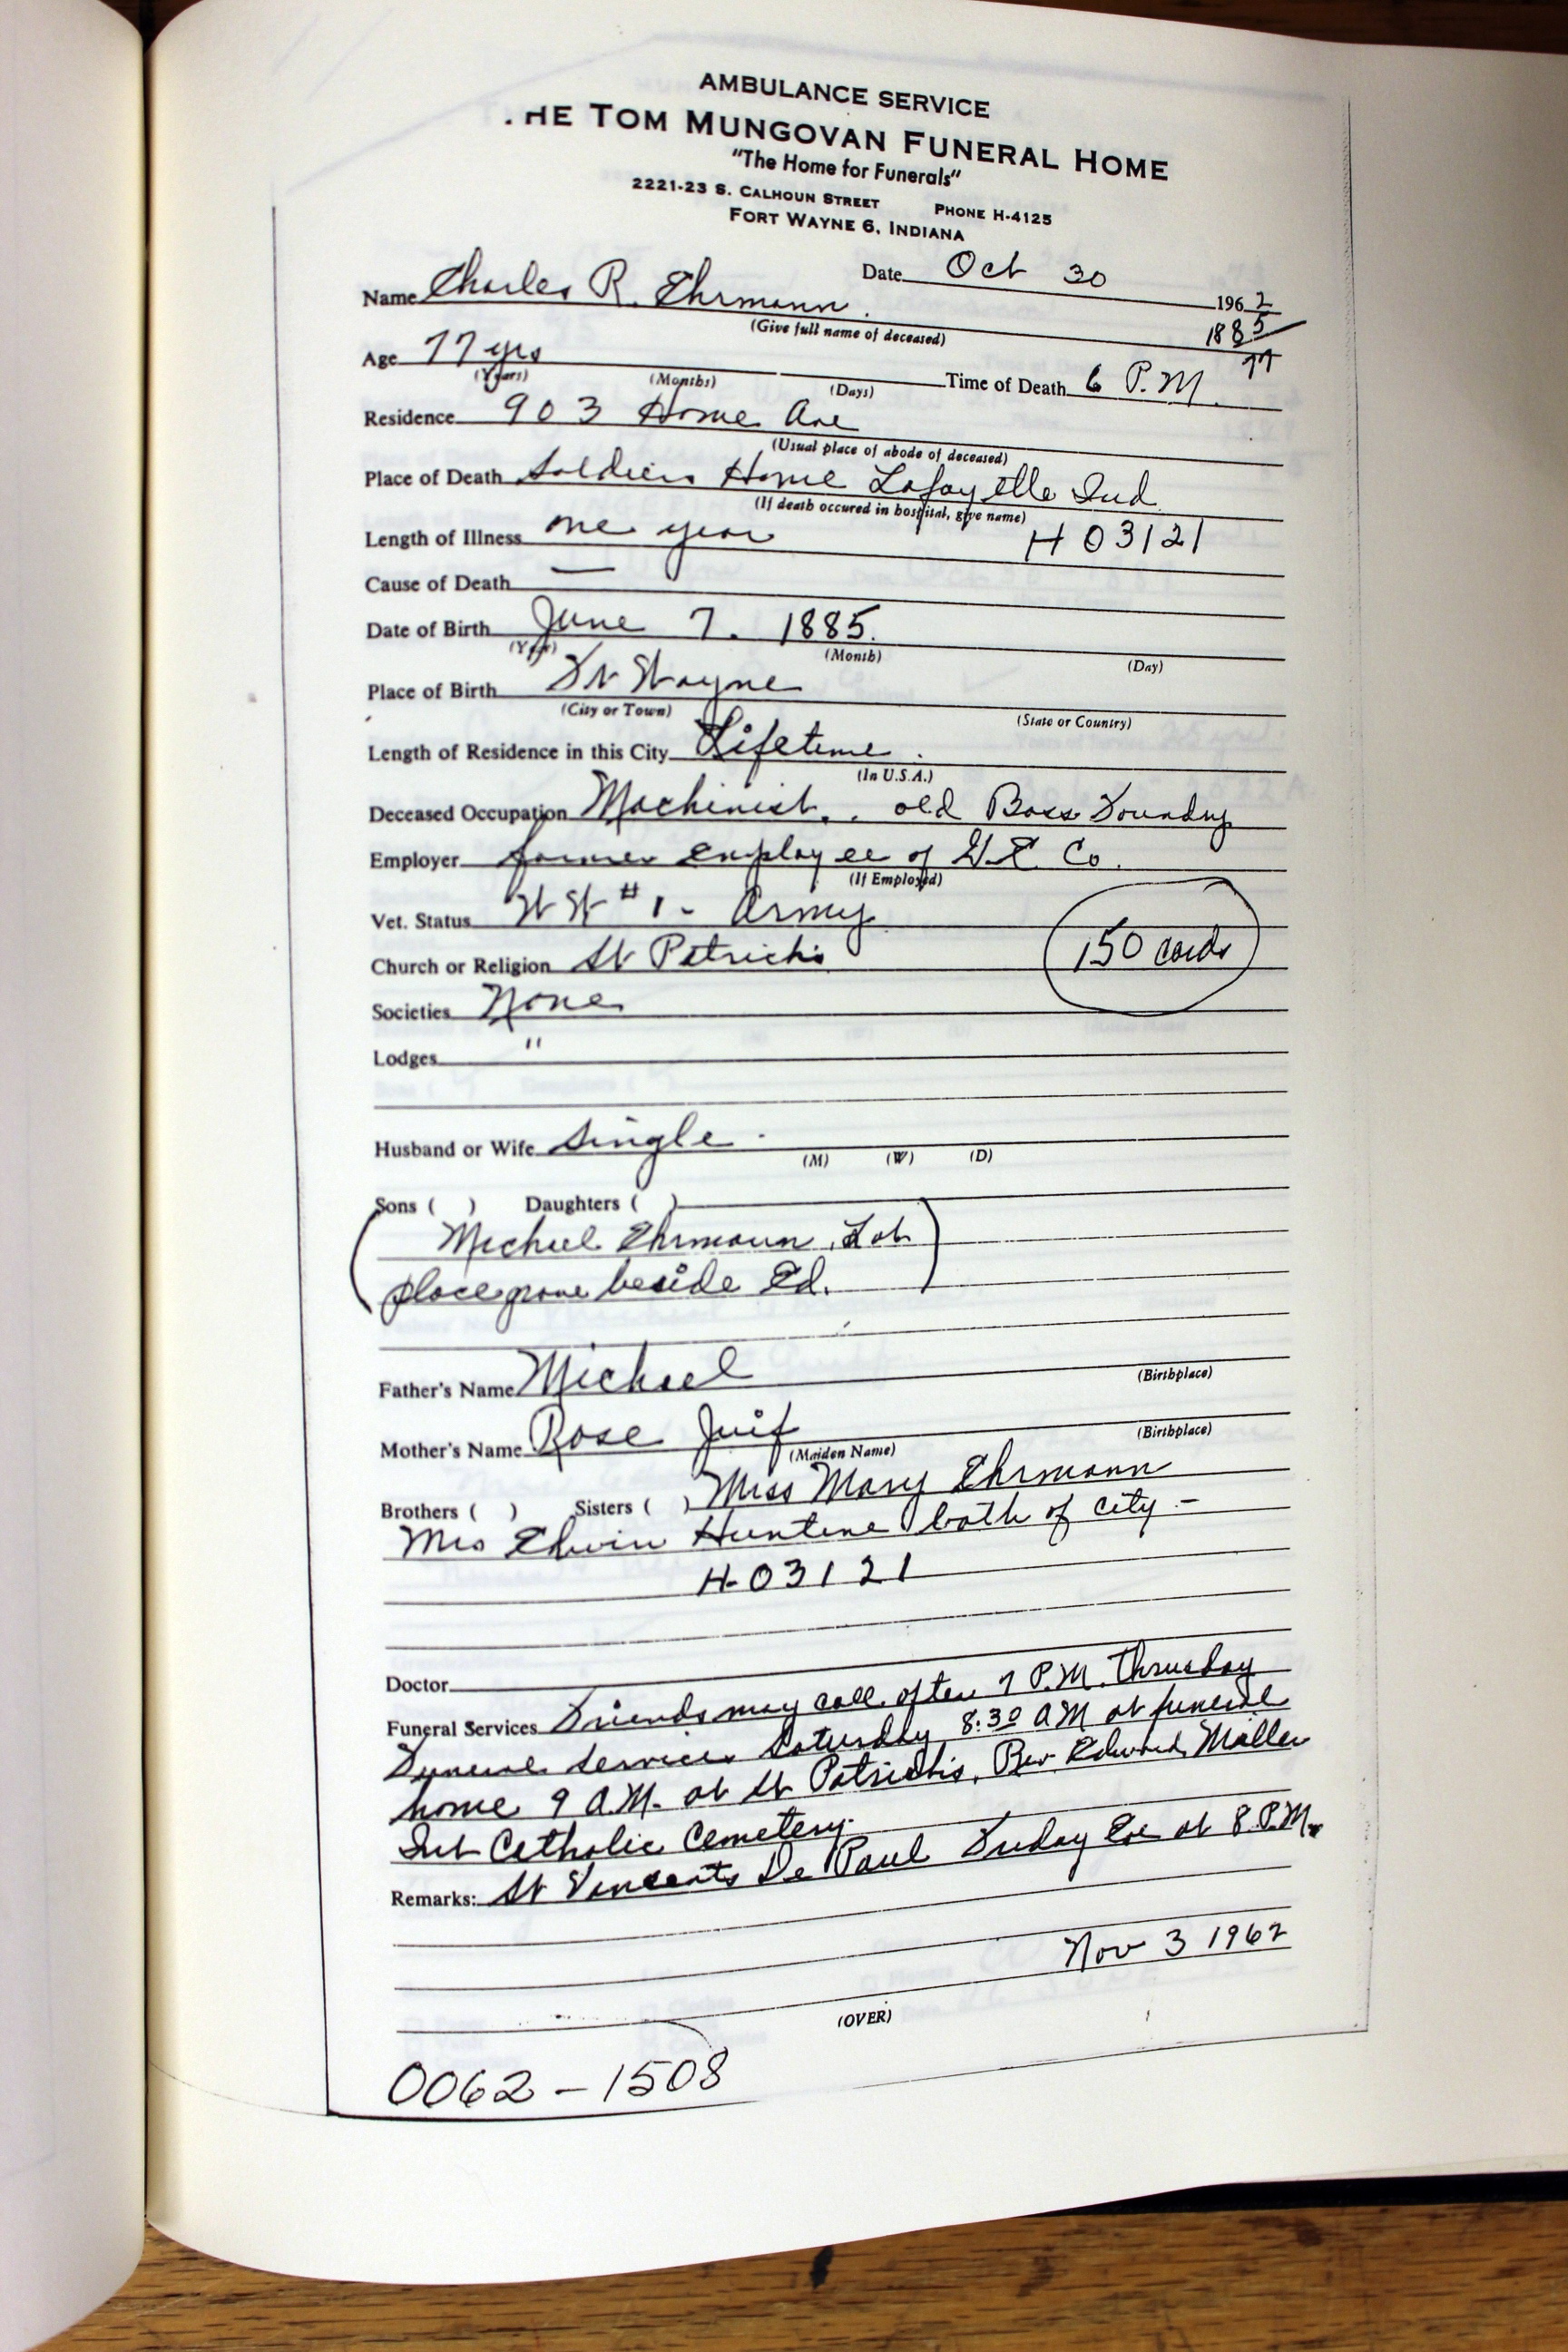 AMBULANCE SERVICE
. HE TOM MUNGOVAN FUNERAL HOME
"The Home for Funerals"
2221-23 S. CALHOUN STREET PHONE H-4125
FORT WAYNE 6, INDIANA
Date Oct 30 1962
Name Charles R. Ehrmann.
(Give full name of deceased) 1885
77
Age 77 yrs Time of Death 6 P.M.
(Years) (Months) (Days)
Residence 903 Home Ave
(Usual place of abode of deceased)
Place of Death Soldiers Home Lafayette Ind
(If death occured in hospital, give name)
Length of Illness one year H 03121
Cause of Death —
Date of Birth June 7. 1885.
(Year) (Month) (Day)
Place of Birth Ft Wayne
(City or Town) (State or Country)
Length of Residence in this City Lifetime.
(In U.S.A.)
Deceased Occupation Machinist. . old Bass Foundry
Employer former employee of G.E. Co.
(If Employed)
Vet. Status W W #1 - Army
150 cards
Church or Religion St Patrick's
Societies None
Lodges "
Husband or Wife Single.
(M) (W) (D)
Sons ( ) Daughters ( )
(Michael Ehrmann, Lot
place grave beside Ed.)
Father's Name Michael
(Birthplace)
Mother's Name Rose Juif
(Maiden Name) (Birthplace)
Brothers ( ) Sisters ( ) Miss Mary Ehrmann
Mrs Edwin Huntine both of city -
H-03121
Doctor
Funeral Services Friends may call after 7 P.M. Thrusday
Funeral Services Saturday 8:30 AM at funeral
home 9 A.M. at St Patrick's, Rev Edward Miller
Int Catholic Cemetery.
Remarks: St Vincents De Paul Friday Eve at 8 P.M.
Nov 3 1962
(OVER)
0062-1508